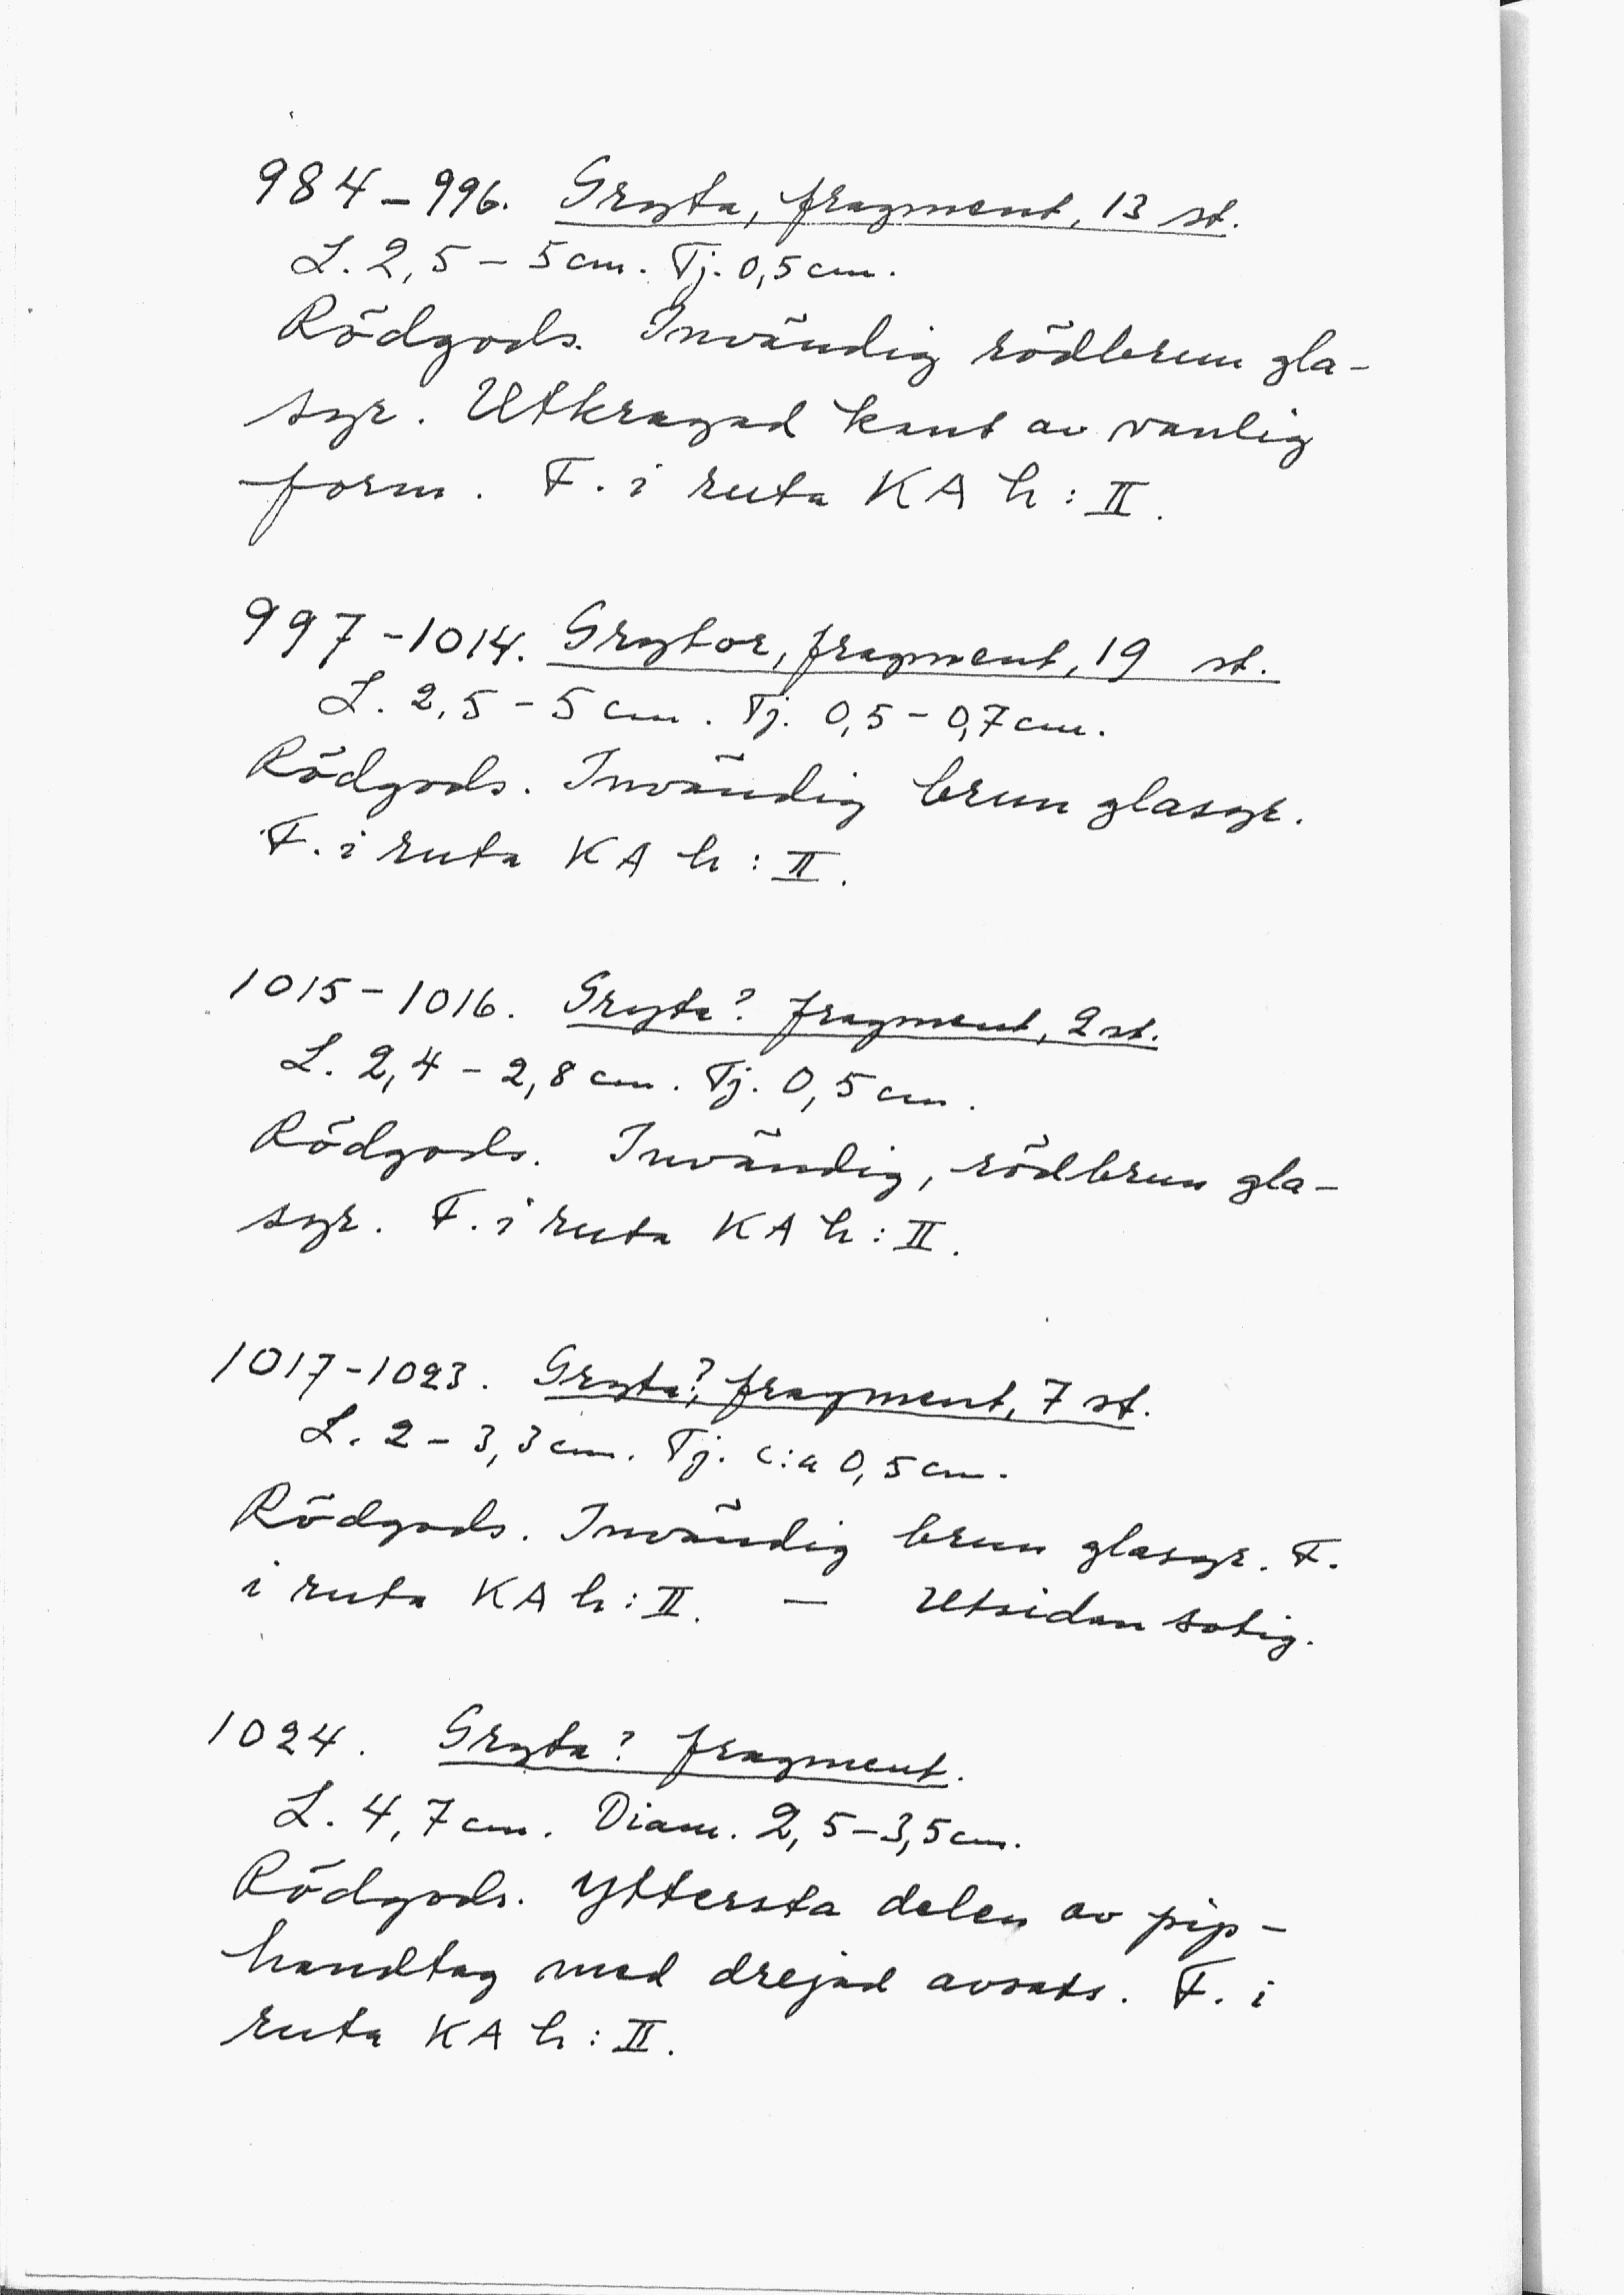 984-996. Gryta, fragment, 13 st.
L. 2,5 - 5 cm. Tj. 0,5 cm.
Rödgods. Invändig rödbrun gla-
syr. Utkragad kant av vanlig
form. F. i ruta KA h: II.
997-1014. Grytor, fragment, 19 st.
L. 2,5 - 5 cm. Tj. 0,5 - 0,7 cm.
Rödgods. Invändig brun glasyr.
F. i ruta KA h: II.
1015-1016. Gryta? fragment, 2 st.
L. 2,4 - 2,8 cm. Tj. 0,5 cm.
Rödgods. Invändig, rödbrun gla-
syr. F. i ruta KA h: II.
1017-1023. Gryta?, fragment, 7 st.
L. 2 - 3,3 cm. Tj. c:a 0,5 cm.
Rödgods. Invändig brun glasyr. F.
i ruta KA h: II. - Utsidan sotig.
1024. Gryta? fragment.
L. 4,7 cm. Diam. 2,5-3,5 cm.
Rödgods. Yttersta delen av pip-
handtag med drejad avsats. F. i
ruta KA h: II.